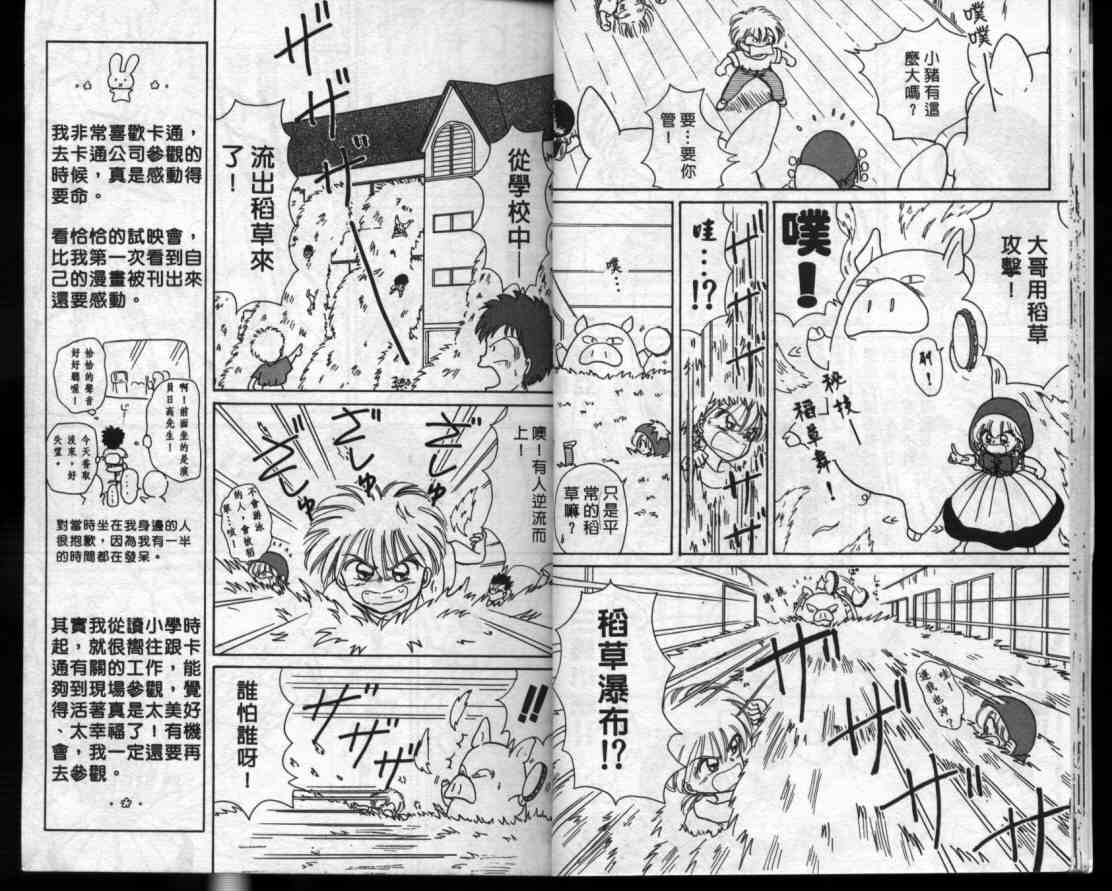 噗
噗
小豬有這
麼大嗎？
要…要你
管！
大哥用稻草
攻擊！
噗！
咧！
秘技－
「稻草舞！
哇…!?
噗…
只是平
常的稻
草嘛？
稻草瀑布!?
哇！
連我也沖？
從學校中——
流出稻草來
了！
噢！有人逆流而
上！
不會游泳
的人，會被稻
草…噫！
誰怕誰呀！
!!
ザザザ
ザザザ
ザザザ
我非常喜歡卡通，
去卡通公司參觀的
時候，真是感動得
要命。
看恰恰的試映會，
比我第一次看到自
己的漫畫被刊出來
還要感動。
恰恰的聲音
好好聽喔！
啊！前面坐的是演
員日高先生！
今天香取
沒來，好
失望。
對當時坐在我身邊的人
很抱歉，因為我有一半
的時間都在發呆。
其實我從讀小學時
起，就很嚮往跟卡
通有關的工作，能
夠到現場參觀，覺
得活著真是太美好
、太幸福了！有機
會，我一定還要再
去參觀。